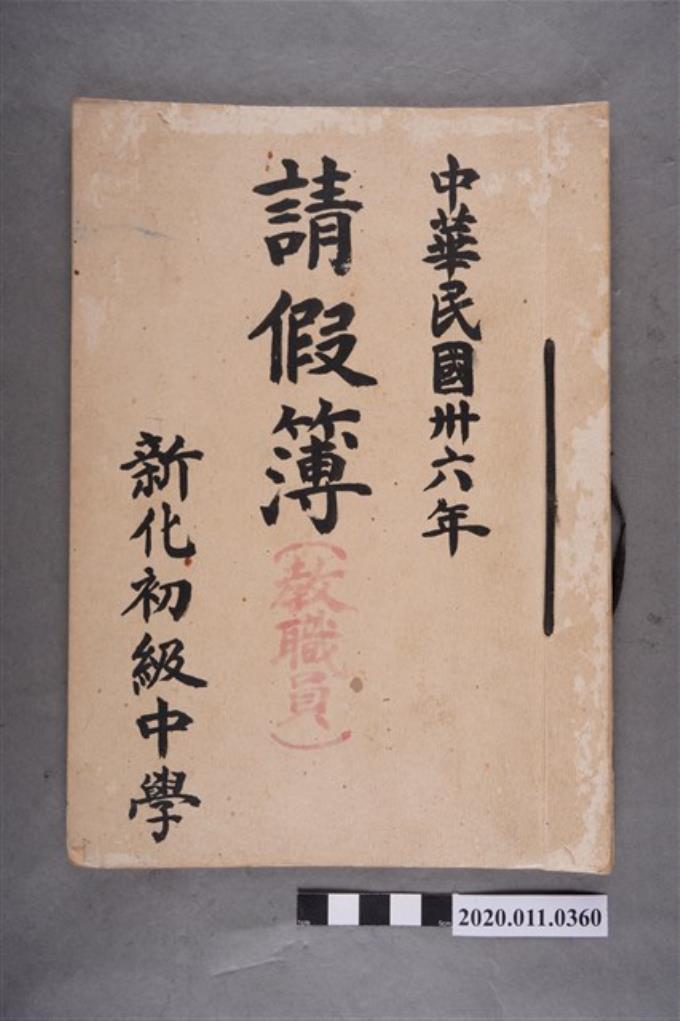 中華民國卅六年
請假簿(教職員)
新化初級中學
2020.011.0360